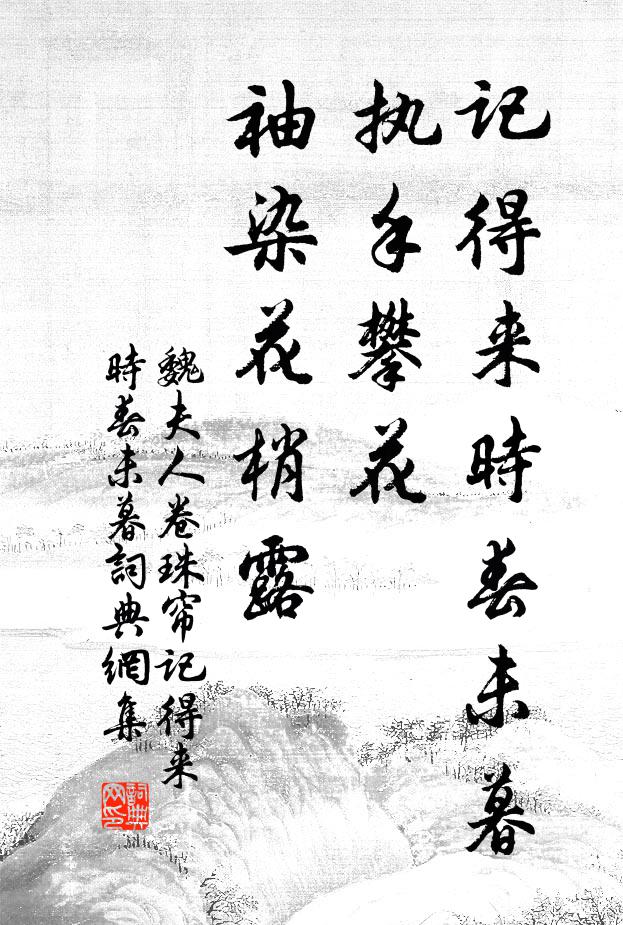 记得来時春未暮
执手攀花
袖染花梢露
魏夫人卷珠帘记得来
時春未暮詞典網集
詞典网印